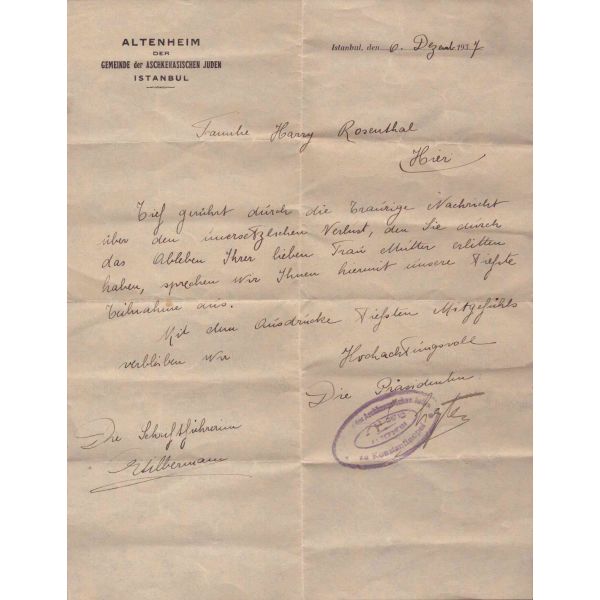 ALTENHEIM
DER
GEMEINDE der ASCHKENASISCHEN JUDEN
ISTANBUL
Istanbul, den 6. Dezemb 1937
Familie Harry Rosenthal
Hier
Tief gerührt durch die traurige Nachricht
über den unersetzlichen Verlust, den Sie durch
das Ableben Ihrer lieben Frau Mutter erlitten
haben, sprechen wir Ihnen hiermit unsere tiefste
Teilnahme aus.
Mit dem Ausdrucke tiefsten Mitgefühls
verbleiben wir
Hochachtungsvoll
Die Präsidentin
Die Schriftführerin
Silbermann
der Aschkenasischen
zu Konstantinopel